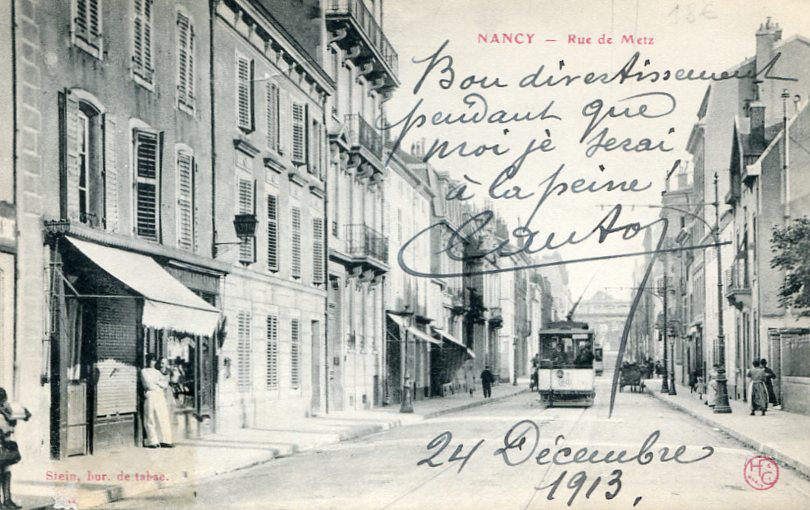 18€
NANCY — Rue de Metz
Bon divertissement
pendant que
moi je serai
à la peine!
24 Décembre
1913.
Stein, bur. de tabac.